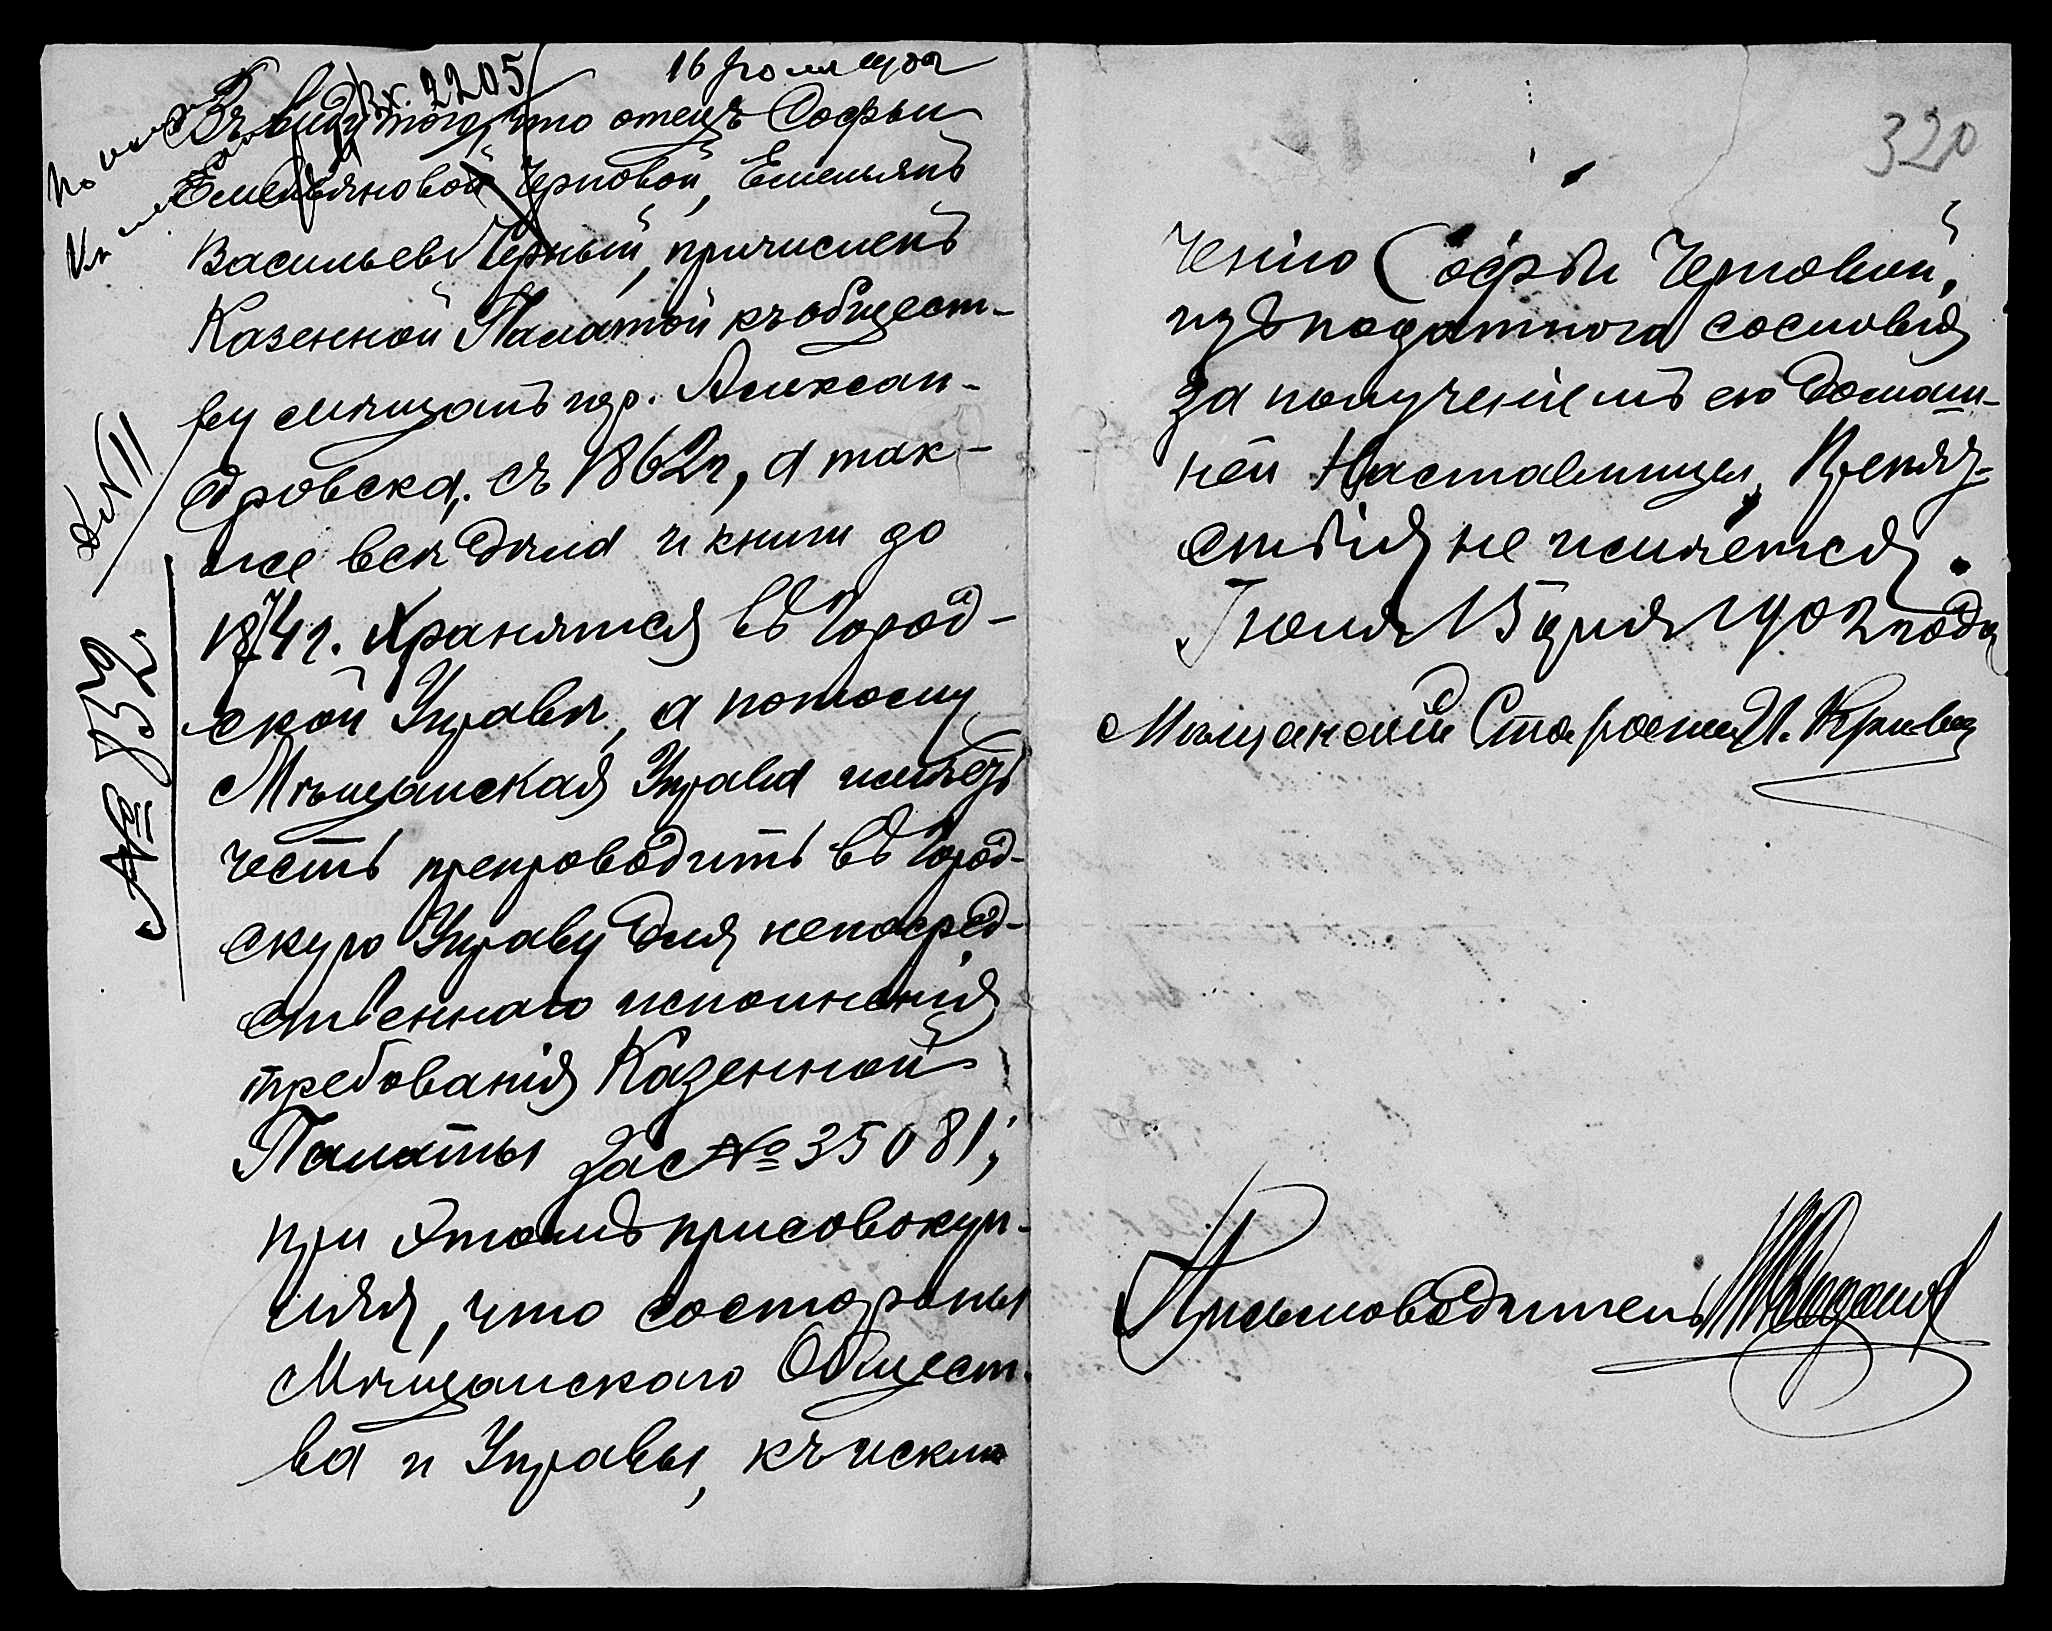 Вх. 2205
16 Юля 1902
Въ виду того, что отецъ Софьи
Емельяновой Черновой, Емельянъ
Васильевъ Черный, причисленъ
Казенной Палатой къ обпщест-
ву мѣщанъ гор. Александ-
ровска, съ 1862 г, а так-
же всѣ дѣла и книги до
1874 г. хранятся въ Город-
ской Управѣ, а потому
Мѣщанская Управа имѣетъ
честь препроводить въ Город-
скую Управу для непосред-
ственнаго исполненія
требованія Казенной
Палаты за № 35081;
при этомъ присовокуп-
ляя, что состороны
Мѣщанскаго Общест-
ва и Управы, къ исклю-
№ 852.
320
ченію Софьи Черновой,
изъ податного сословія
за полученіемъ ею домаш-
ней Наставницы, Препят-
ствія не имѣется.
Іюля 15 дня 1902 года
Мѣщанскій Староста И. Кривец
Письмоводитель